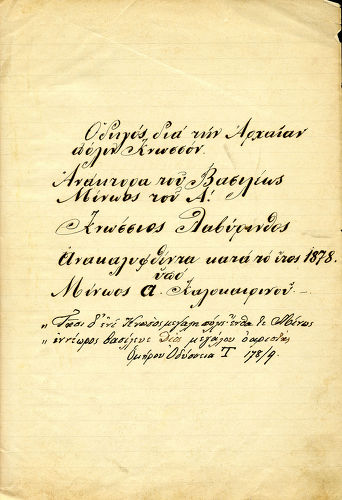 Ὁδηγός διά τήν Ἀρχαίαν
πόλιν Κνωσσόν.
Ἀνάκτορα τοῦ Βασιλέως
Μίνωος τοῦ Α!
Κνώσσιος Λαβύρινθος
Ἀνακαλυφθέντα κατά τό ἔτος 1878.
ὑπό
Μίνωος Α. Καλοκαιρινοῦ –
„ Τῇσι δ' ἐνί Κνωσος μεγάλη πόλις ἔνθα τε Μίνως
„ ἐννέωρος βασίλευε Διός μεγάλου ὀαριστής
Ὁμήρου Ὀδύσσεια Τ 178/9